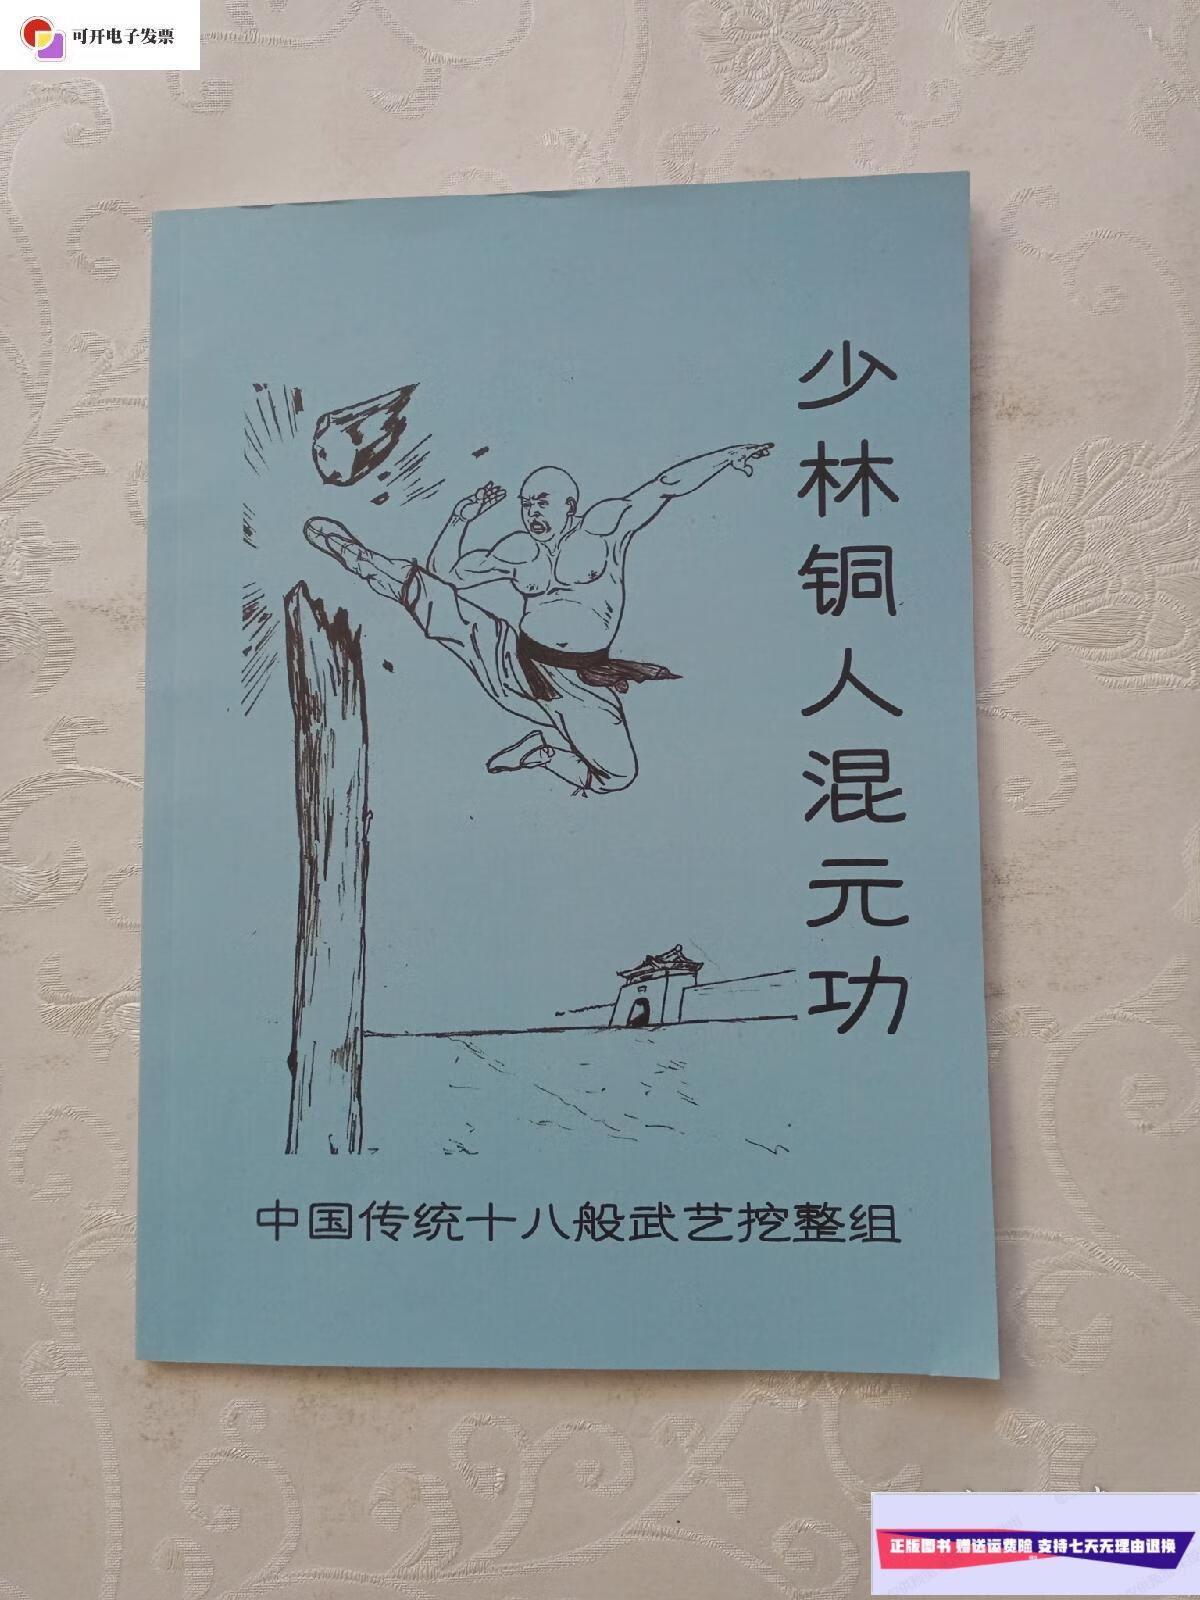 可开电子发票
少林铜人混元功
中国传统十八般武艺挖整组
正版图书 赠送运费险 支持七天无理由退换